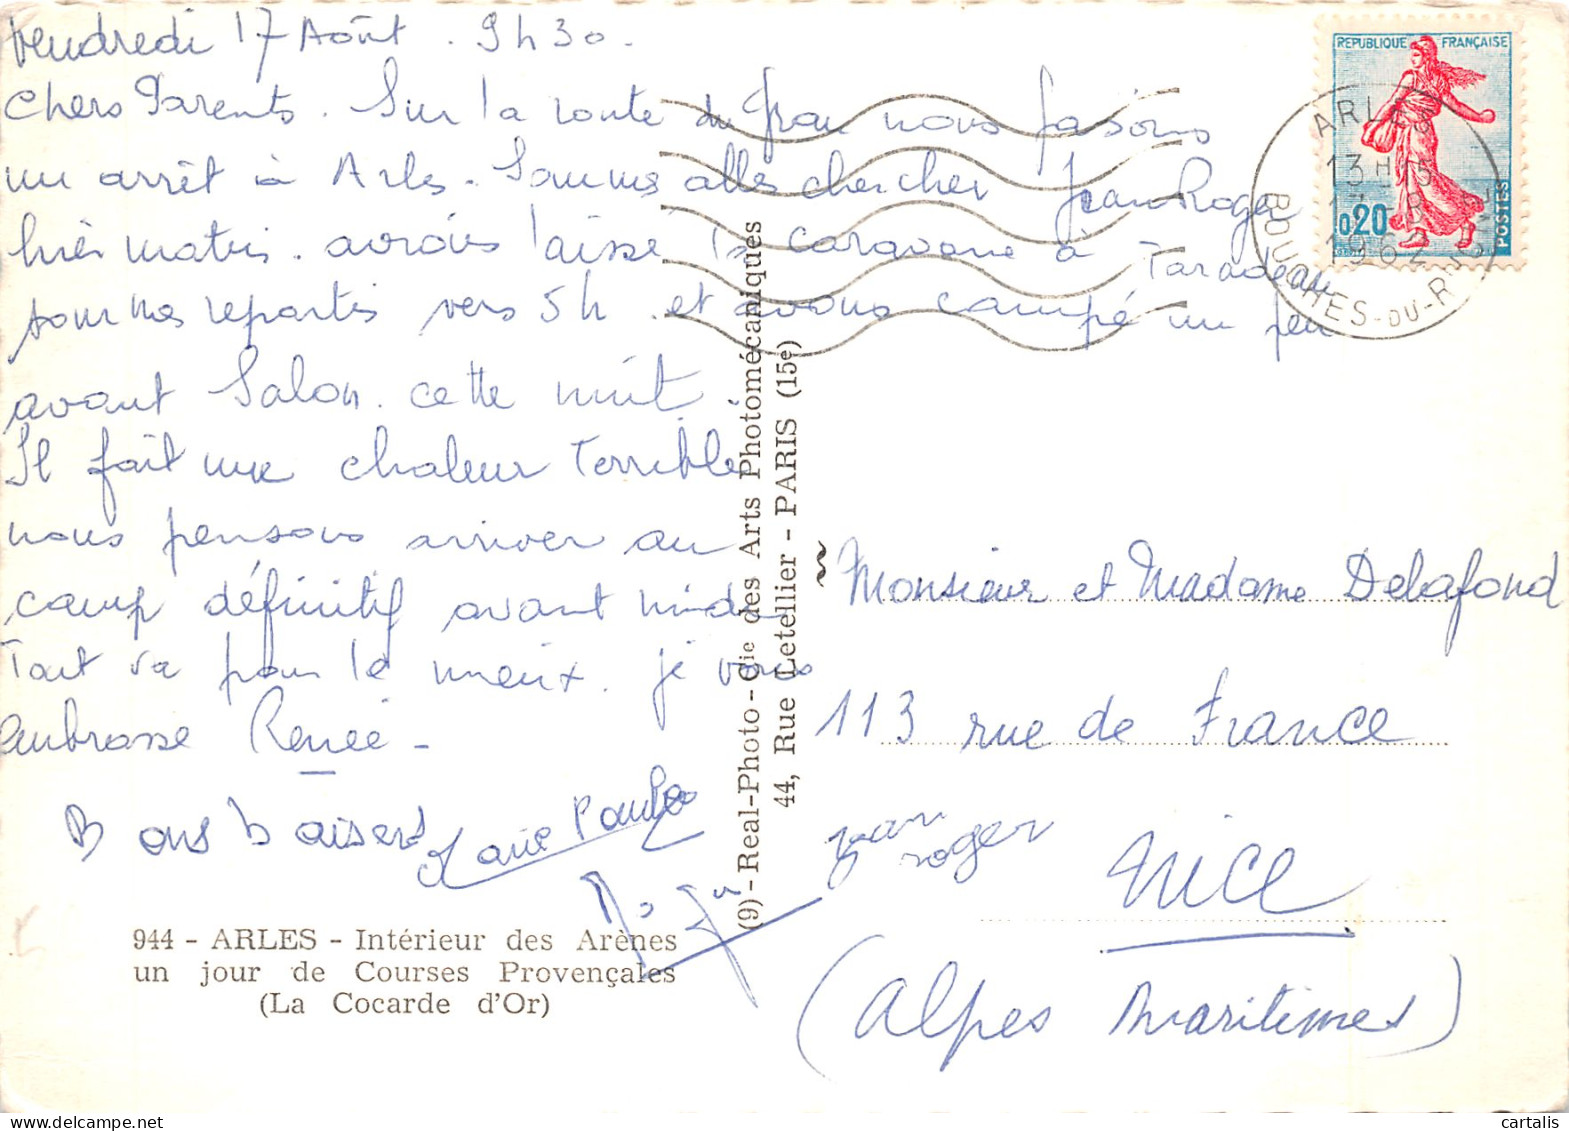 Vendredi 17 Août . 9h30.
Chers Parents. Sur la route du Grau nous faisons
un arrêt à Arles. Sommes allés chercher Jean Roger
hier matin. avons laissé la caravane à Taradeau
sommes repartis vers 5h. et avons campé un peu
avant Salon. cette nuit.
Il fait une chaleur Terrible
nous pensons arriver au
camp définitif avant midi
Tout va pour le mieux. je vous
embrasse Renée -
Bons baisers Marie Paule
Jean
roger
Monsieur et Madame Delafond
113 rue de France
NICE
(Alpes Maritimes)
944 - ARLES - Intérieur des Arènes
un jour de Courses Provençales
(La Cocarde d'Or)
(9) - Real-Photo - Cie des Arts Photomécaniques
44, Rue Letellier - PARIS (15e)
REPUBLIQUE FRANÇAISE
0,20
POSTES
ARLES
13H15
8
1962
BOUCHES-DU-R
cartalis